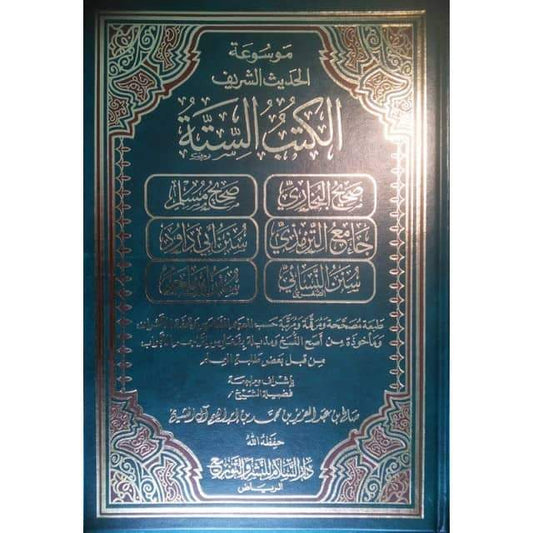 مَوسُوعَة
الحَديث الشّريف
الكتُبُ السِّتَّةُ
صَحِيحُ البُخَاريّ
صَحِيحُ مُسْلِم
جَامع التِّرمِذيّ
سُنَنُ أبي دَاوُد
سُنَنُ النَّسَائيّ
سُنَنُ ابن مَاجَه
طبعَة مُصَحَّحَة وَمُرَقَّمَة وَمُرَتَّبَة حَسَبَ المعجم المفهرس
وَمَأخوذَة مِن أصَحّ النُّسَخ
مِن قبَل بَعض طلبَة العِلم
بإشراف ومراجعة
فَضيلَة الشَّيْخ /
صَالح بن عَبد العَزيز بن محمّد بن إبراهيم آل الشيخ
حَفِظَهُ اللَّه
دَارُ السَّلام للنَّشر والتَّوزيع
الريَاض